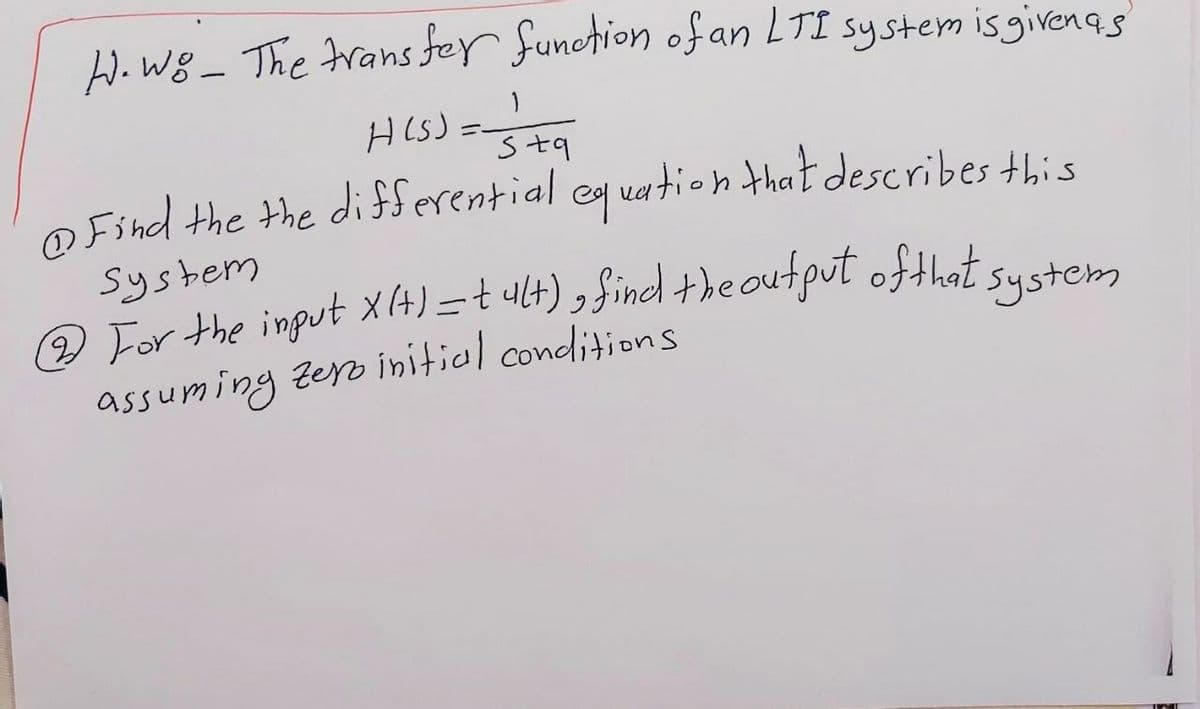 H.W8- The transfer function of an LTI system is given as
H(s) = 1
s+9
① Find the the differential equation that describes this
System
② For the input x(t) = t u(t), find the output of that system
assuming zero initial conditions